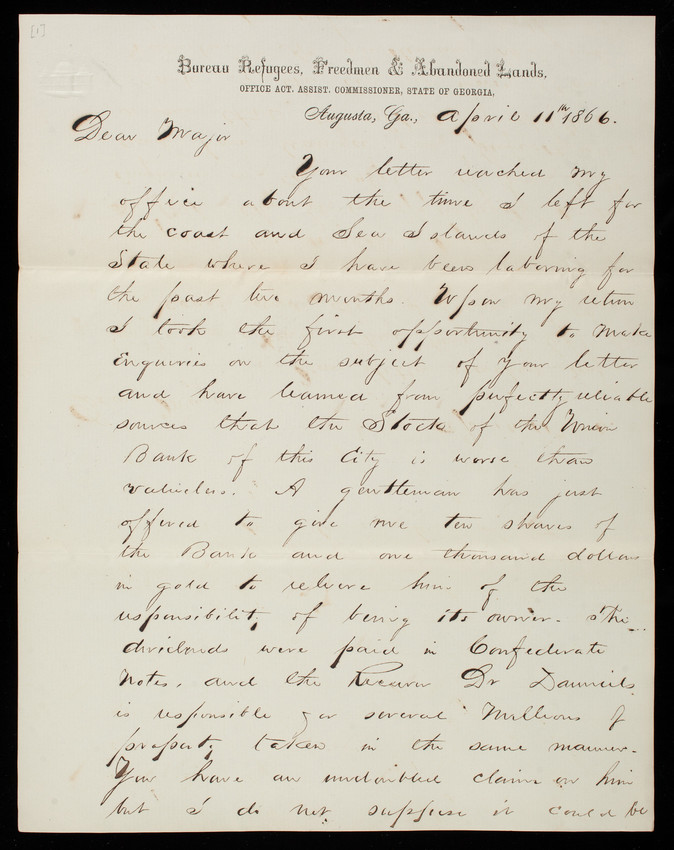 [1]
Bureau Refugees, Freedmen & Abandoned Lands,
OFFICE ACT. ASSIST. COMMISSIONER, STATE OF GEORGIA,
Augusta, Ga., April 11th 1866.
Dear Major
Your letter reached my
office about the time I left for
the coast and Sea Islands of the
State where I have been laboring for
the past two months. Upon my return
I took the first opportunity to make
enquiries on the subject of your letter
and have learned from perfectly reliable
sources that the Stock of the Union
Bank of this City is worse than
valueless. A gentleman has just
offered to give me ten shares of
the Bank and one thousand dollars
in gold to relieve him of the
responsibility of being its owner. The
dividends were paid in Confederate
Notes, and the Receiver Dr
is responsible for several Millions of
property taken in the same manner.
You have an undoubted claim on him
but I do not suppose it could be